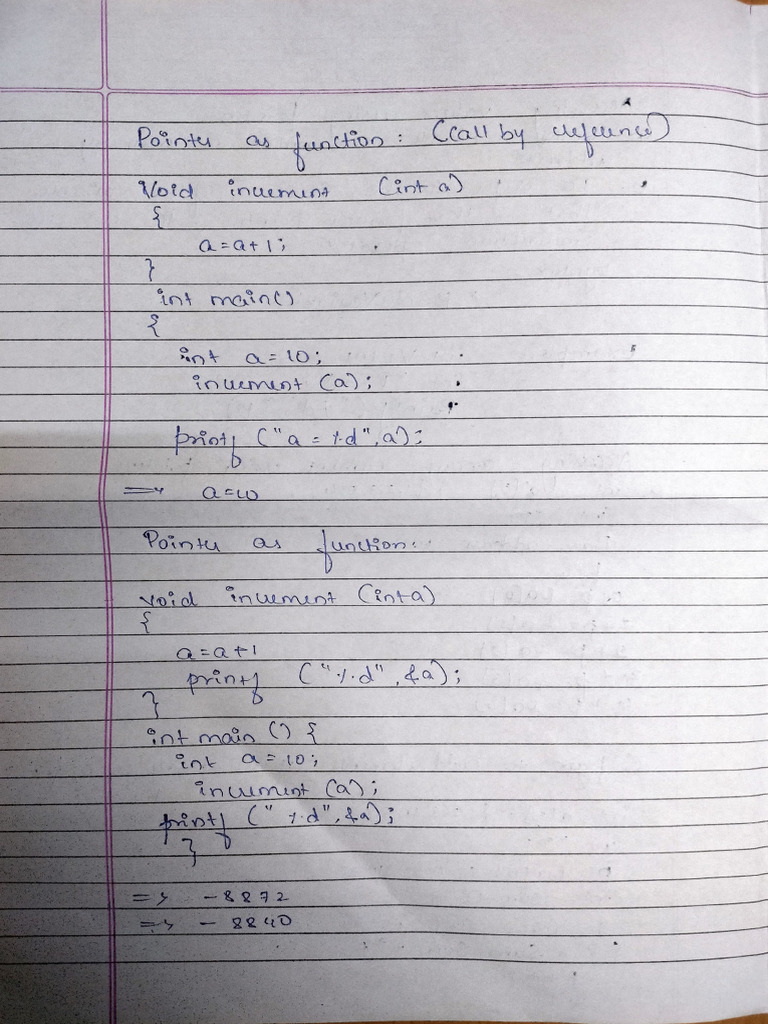 Pointer as function: (Call by reference)
Void increment (int a)
{
a=a+1;
}
int main()
{
int a=10;
increment (a);
printf ("a = %d", a);
=> a=10
Pointer as function:
void increment (int a)
{
a=a+1
printf ("%d", &a);
}
int main () {
int a=10;
increment (a);
printf ("%d", &a);
}
=> -8872
=> -8840